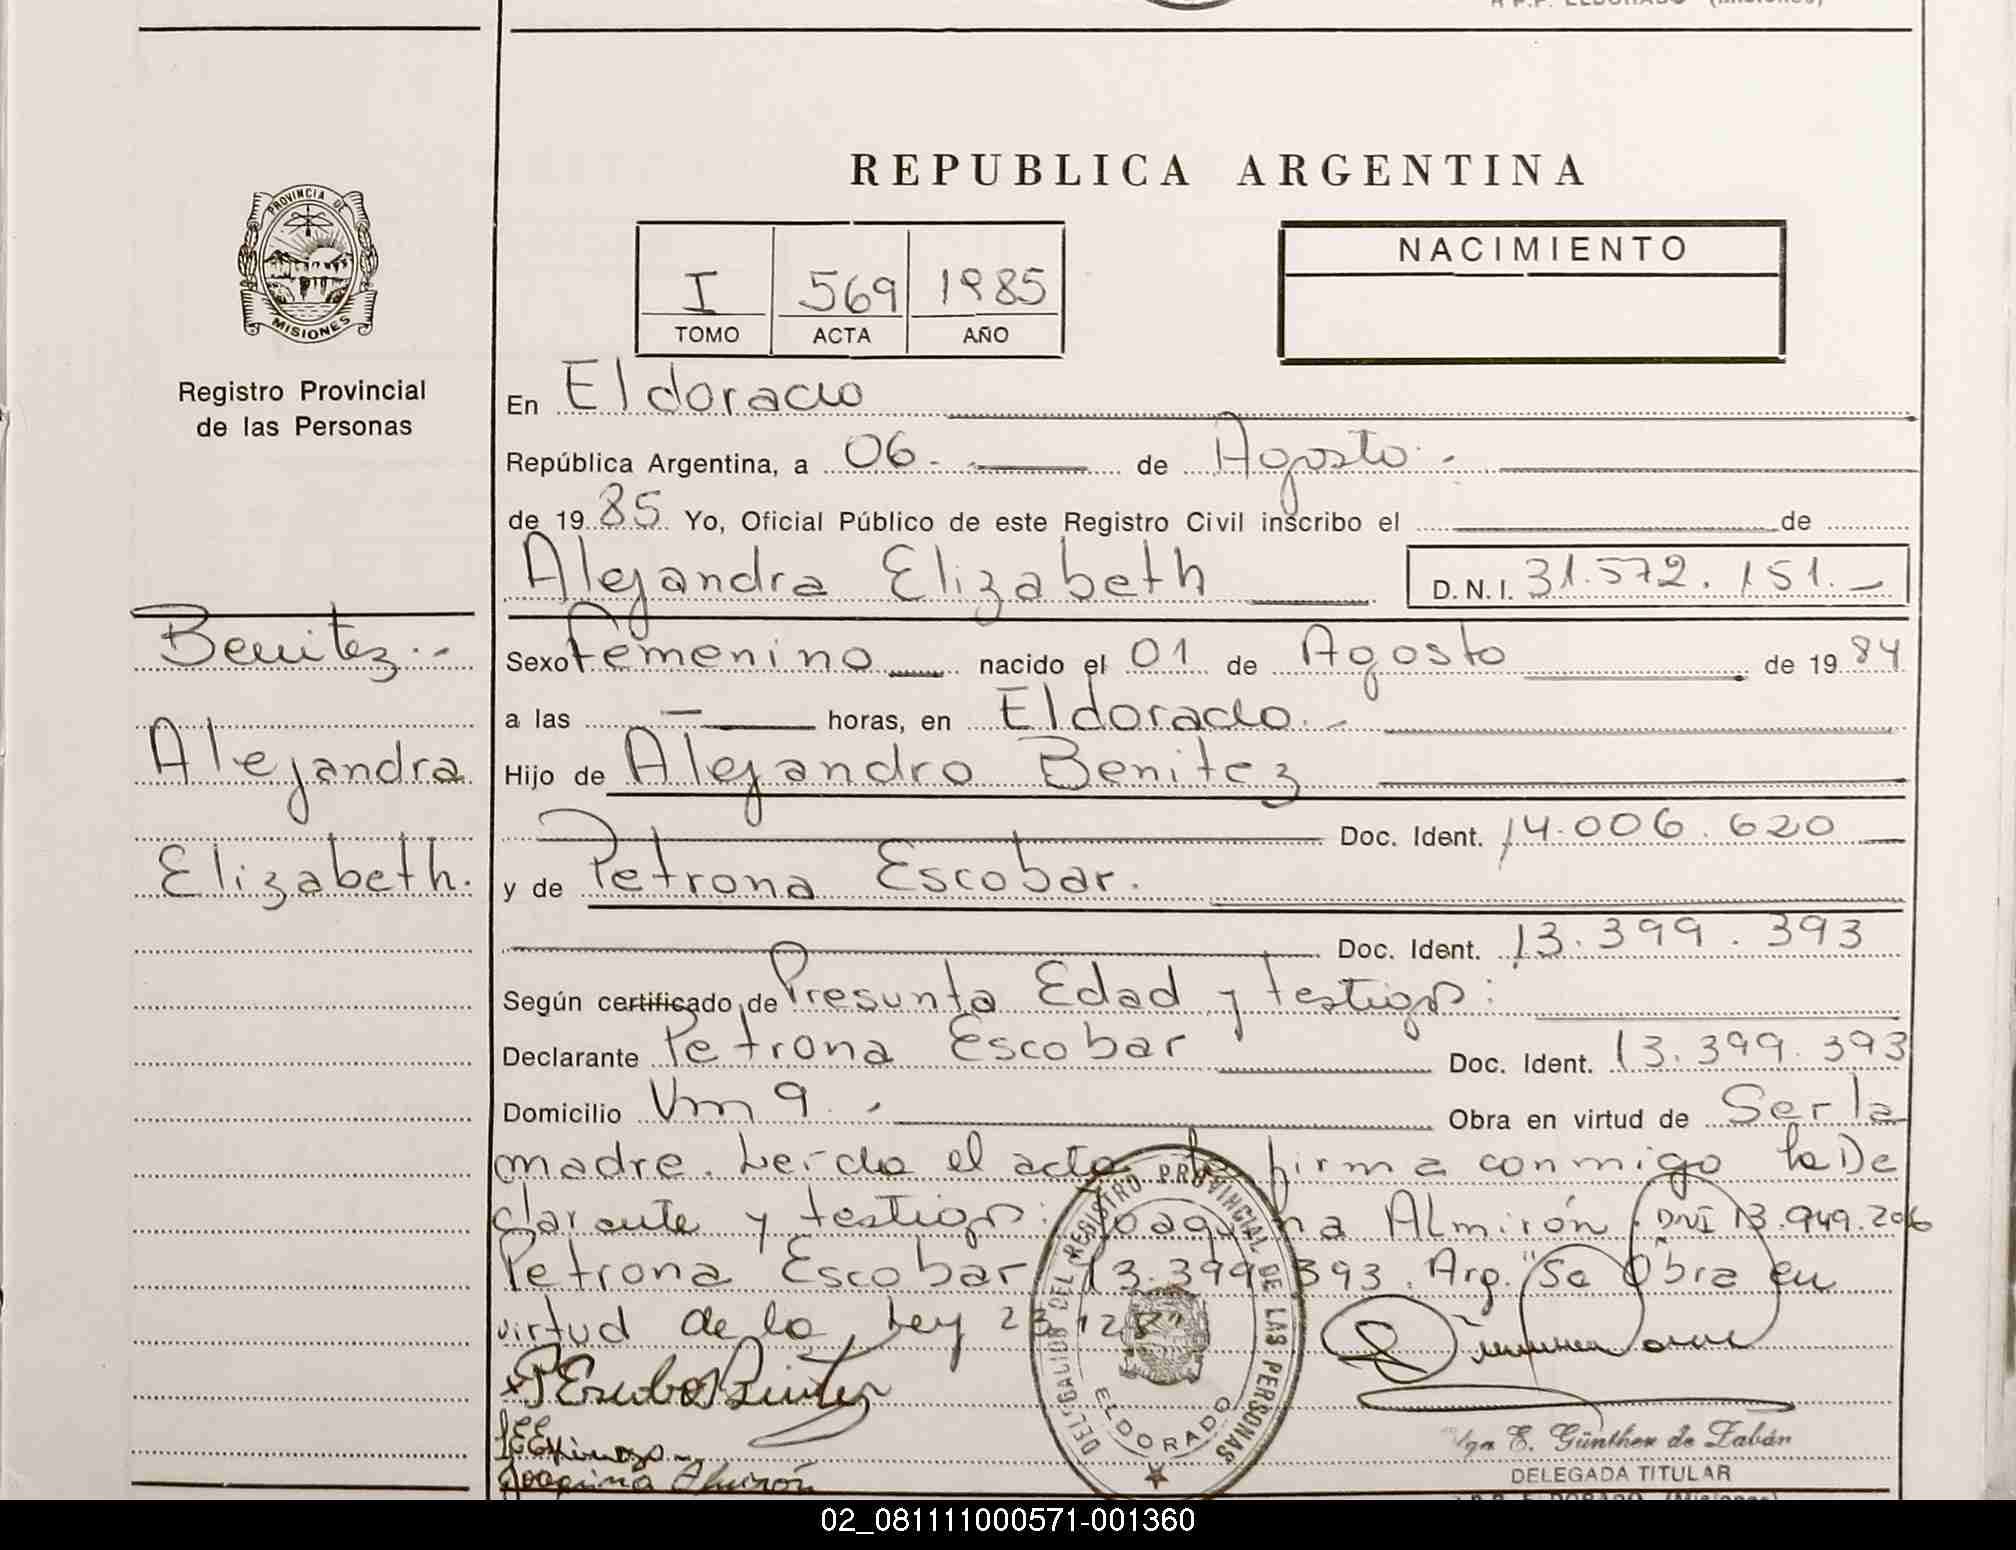 R.P.P. ELDORADO (Misiones)
REPUBLICA ARGENTINA
PROVINCIA DE
MISIONES
Registro Provincial
de las Personas
I 569 1985
TOMO ACTA AÑO
NACIMIENTO
En Eldorado
República Argentina, a 06.- de Agosto.-
de 1985 Yo, Oficial Público de este Registro Civil inscribo el de
Alejandra Elizabeth D.N.I. 31.572.151.-
Benitez.-
Alejandra
Elizabeth.
Sexo Femenino nacido el 01 de Agosto de 1984
a las - horas, en Eldorado.-
Hijo de Alejandro Benitez
Doc. Ident. 14.006.620
y de Petrona Escobar.
Doc. Ident. 13.399.393
Según certificado de Presunta Edad y testigos:
Declarante Petrona Escobar Doc. Ident. 13.399.393
Domicilio Km 9.- Obra en virtud de Ser la
madre. Leida el acta la firma conmigo la De
clarante y testigos: Joaquina Almirón. DNI 13.949.206
Petrona Escobar 13.399.393. Arg. "Se Obra en
virtud de la Ley 23.128"
DELEGACION DEL REGISTRO PROVINCIAL DE LAS PERSONAS
ELDORADO
Joaquina Almirón
E. Günther de Zabán
DELEGADA TITULAR
R.P.P. ELDORADO (Misiones)
02_081111000571-001360